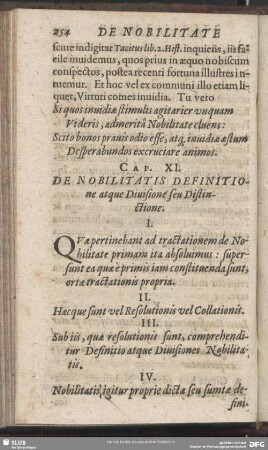 254 DE NOBILITATE
scure indigitat Tacitus lib. 2. Hist. inquiens, iis fa-
cile invidemus, quos prius in æquo nobiscum
conspectos, postea recenti fortuna illustres in-
tuemur. Et hoc vel ex communi illo etiam li-
quet, Virtuti comes inuidia. Tu vero
Si quos inuidiæ stimulis agitarier vnquam
Videris, ad meritâ Nobilitate cluens:
Scito bonos prauis odio esse, atq; inuidiæ æstum
Desperabundos excruciare animos.
CAP. XI.
DE NOBILITATIS DEFINITIO-
ne atque Diuisione seu Distin-
ctione.
I.
QVæ pertinebant ad tractationem de No-
bilitate primam ita absoluimus: super-
sunt ea quæ è primis iam constituenda sunt,
orta tractationis propria.
II.
Hæcque sunt vel Resolutionis vel Collationis.
III.
Sub iis, quæ resolutionis sunt, comprehendi-
tur Definitio atque Diuisiones Nobilita-
tis.
IV.
Nobilitatis igitur proprie dictæ seu sumtæ de-
fini-
SLUB
DFG